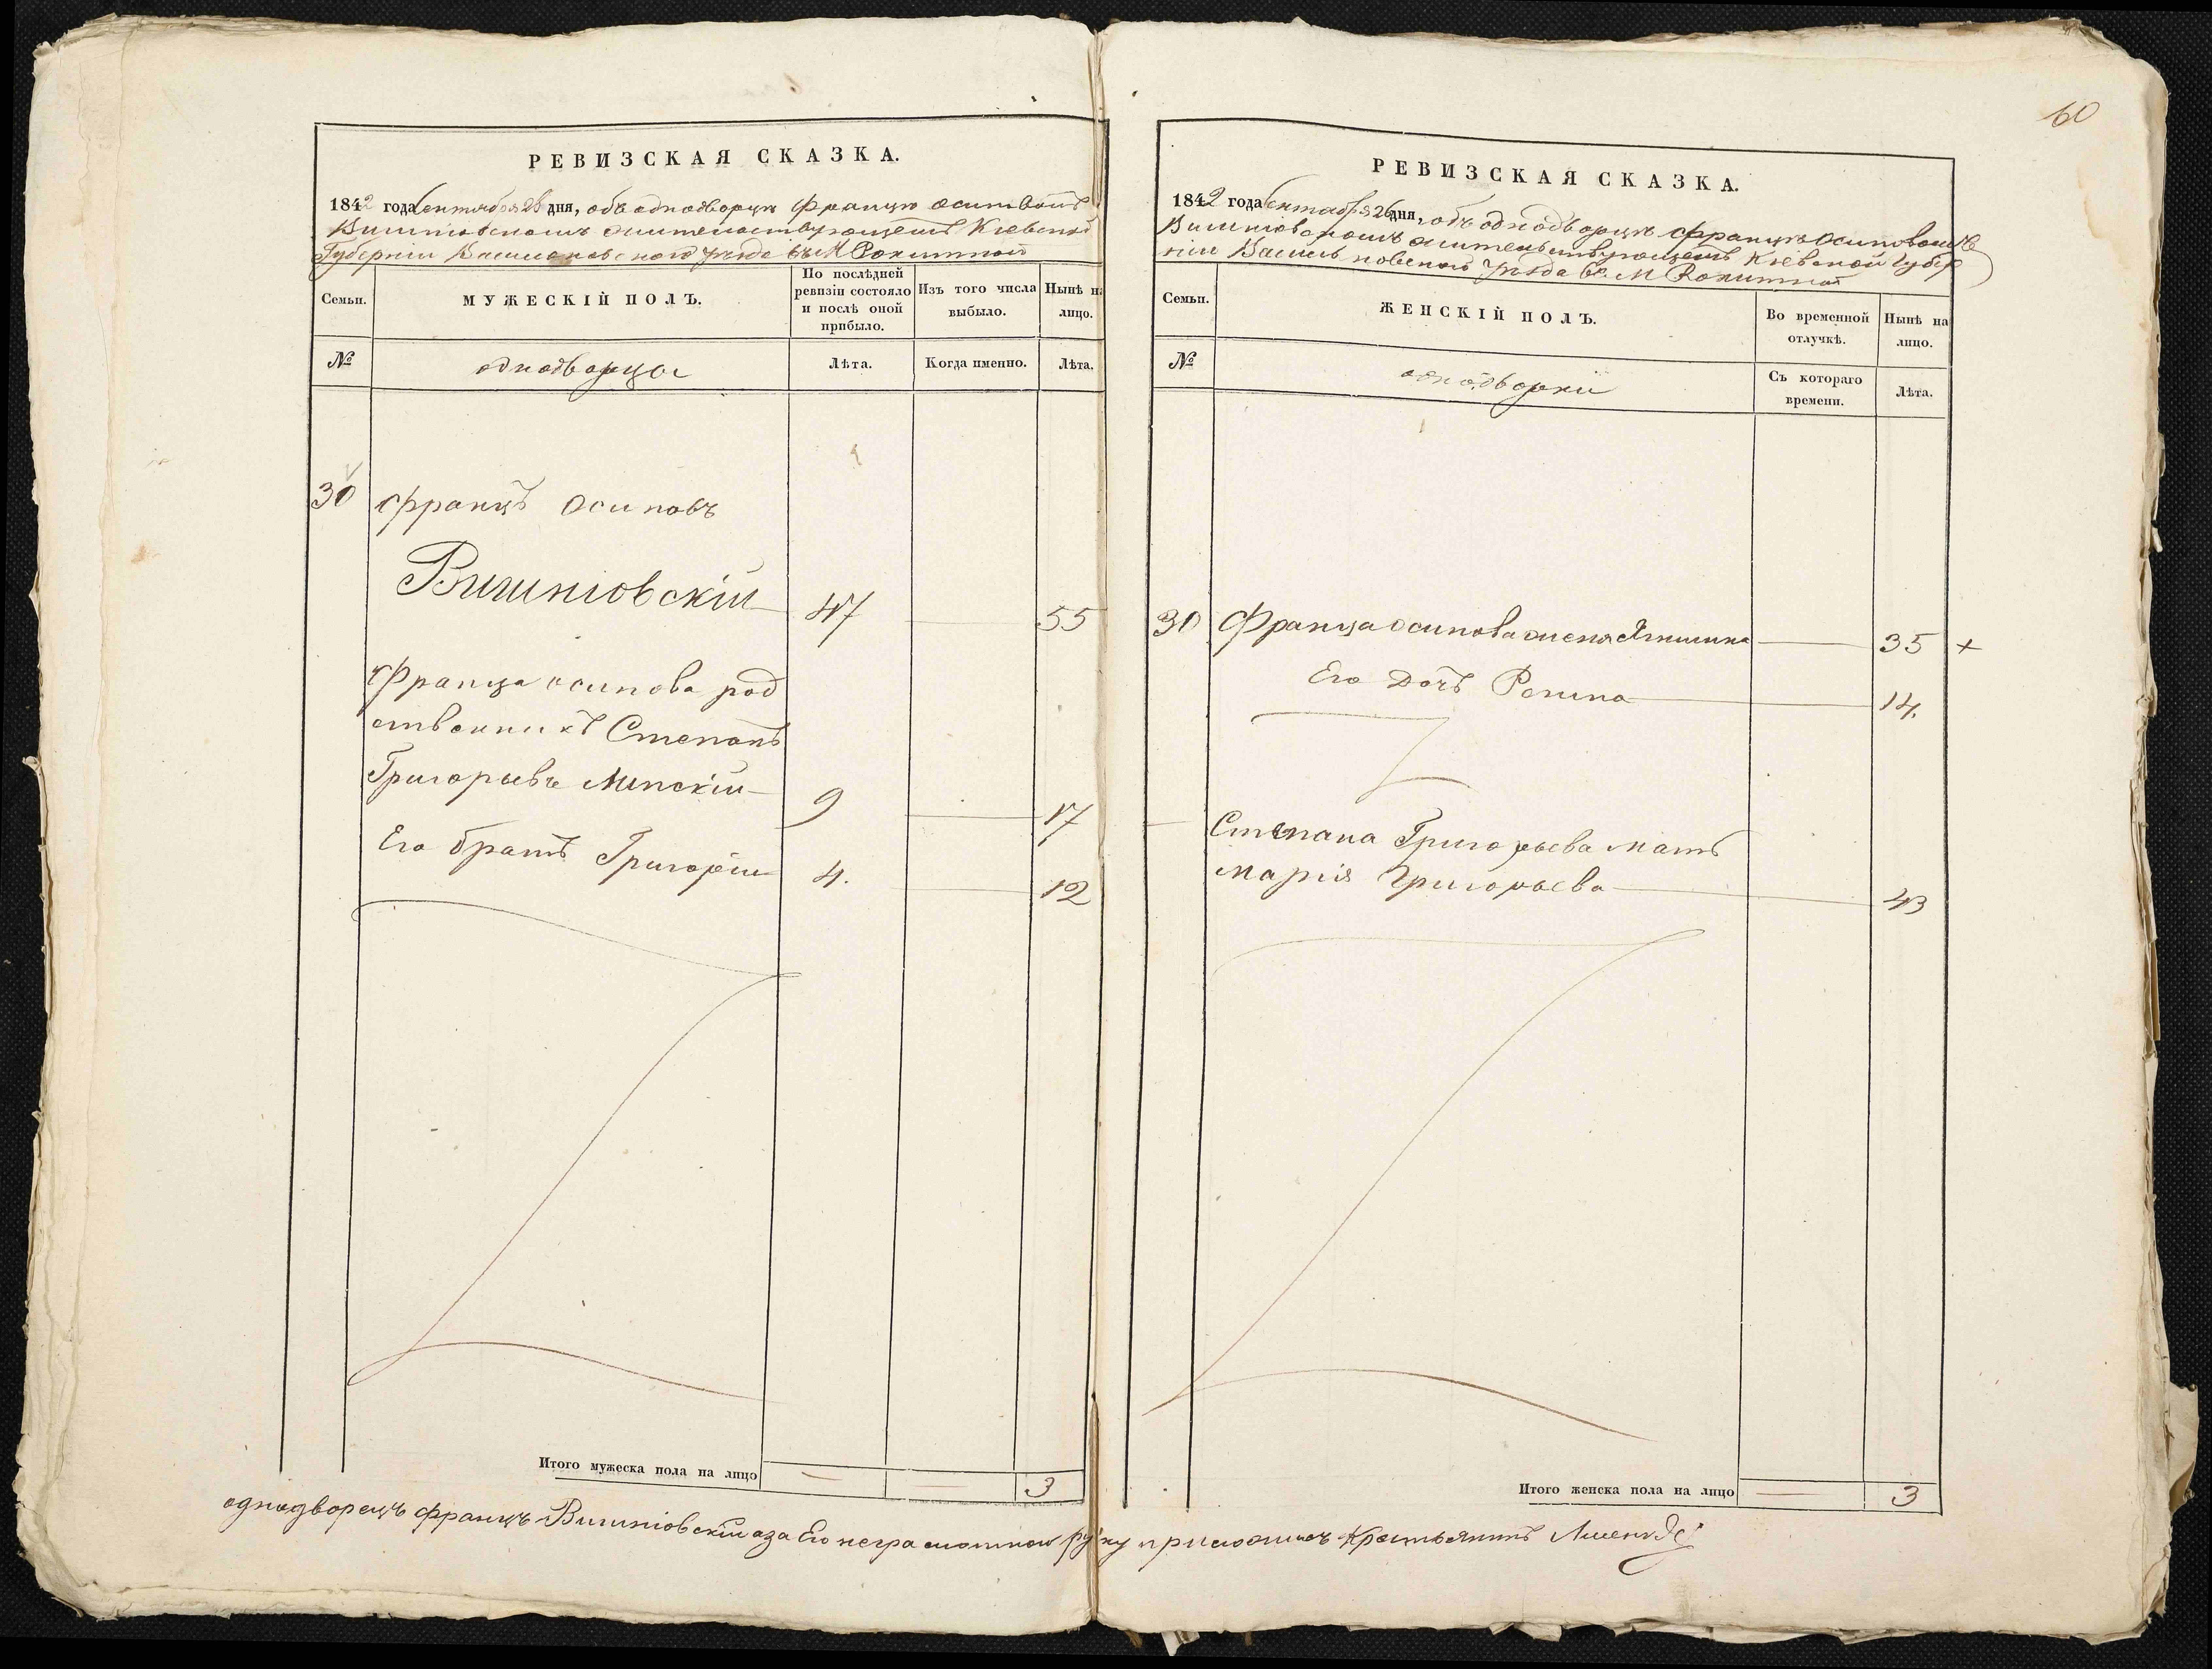 60
РЕВИЗСКАЯ СКАЗКА.
1842 года Сентября 26 дня, объ однодворцѣ Францѣ Осиповомъ
Вишніовскомъ жительствующемъ Кіевской
Губерніи Васильковского уѣзда въ М Рокитной
Семьи. МУЖЕСКІЙ ПОЛЪ. По послѣдней ревизіи состояло и послѣ оной прибыло. Изъ того числа выбыло. Нынѣ на лицо.
№ однодворцы Лѣта. Когда именно. Лѣта.
30 Францъ Осиповъ
Вишніовскій 47 55
Франца Осипова род
ственникъ Степанъ
Григорьевъ Липскій 9 17
Его братъ Григорій 4. 12
Итого мужеска пола на лицо 3
РЕВИЗСКАЯ СКАЗКА.
1842 года Сентября 26 дня, объ однодворцѣ Францѣ Осиповомъ
Вишніовскомъ жительствующемъ Кіевской Губер
ніи Васильковского уѣзда въ М Рокитной
Семьи. ЖЕНСКІЙ ПОЛЪ. Во временной отлучкѣ. Нынѣ на лицо.
№ однодворки Съ котораго времени. Лѣта.
30 Франца Осипова жена 35 +
Его дочь 14.
Степана Григорьева мать
Марія Григорьева 43
Итого женска пола на лицо 3
однодворецъ Францъ Вишніовскій а за Его неграмотного руку приложилъ Крестьянинъ